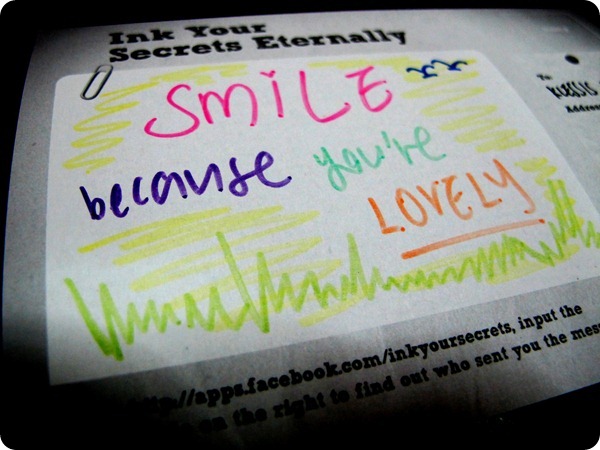 Ink Your
Secrets Eternally
SMiLE
because you're
LOVELY
To
Address
http://apps.facebook.com/inkyoursecrets, input the
on the right to find out who sent you the